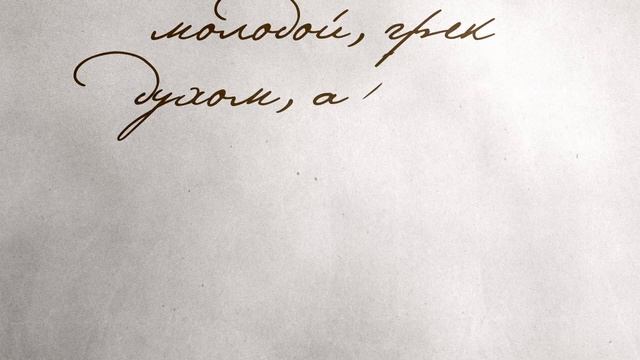 молодой, грек
духом, а